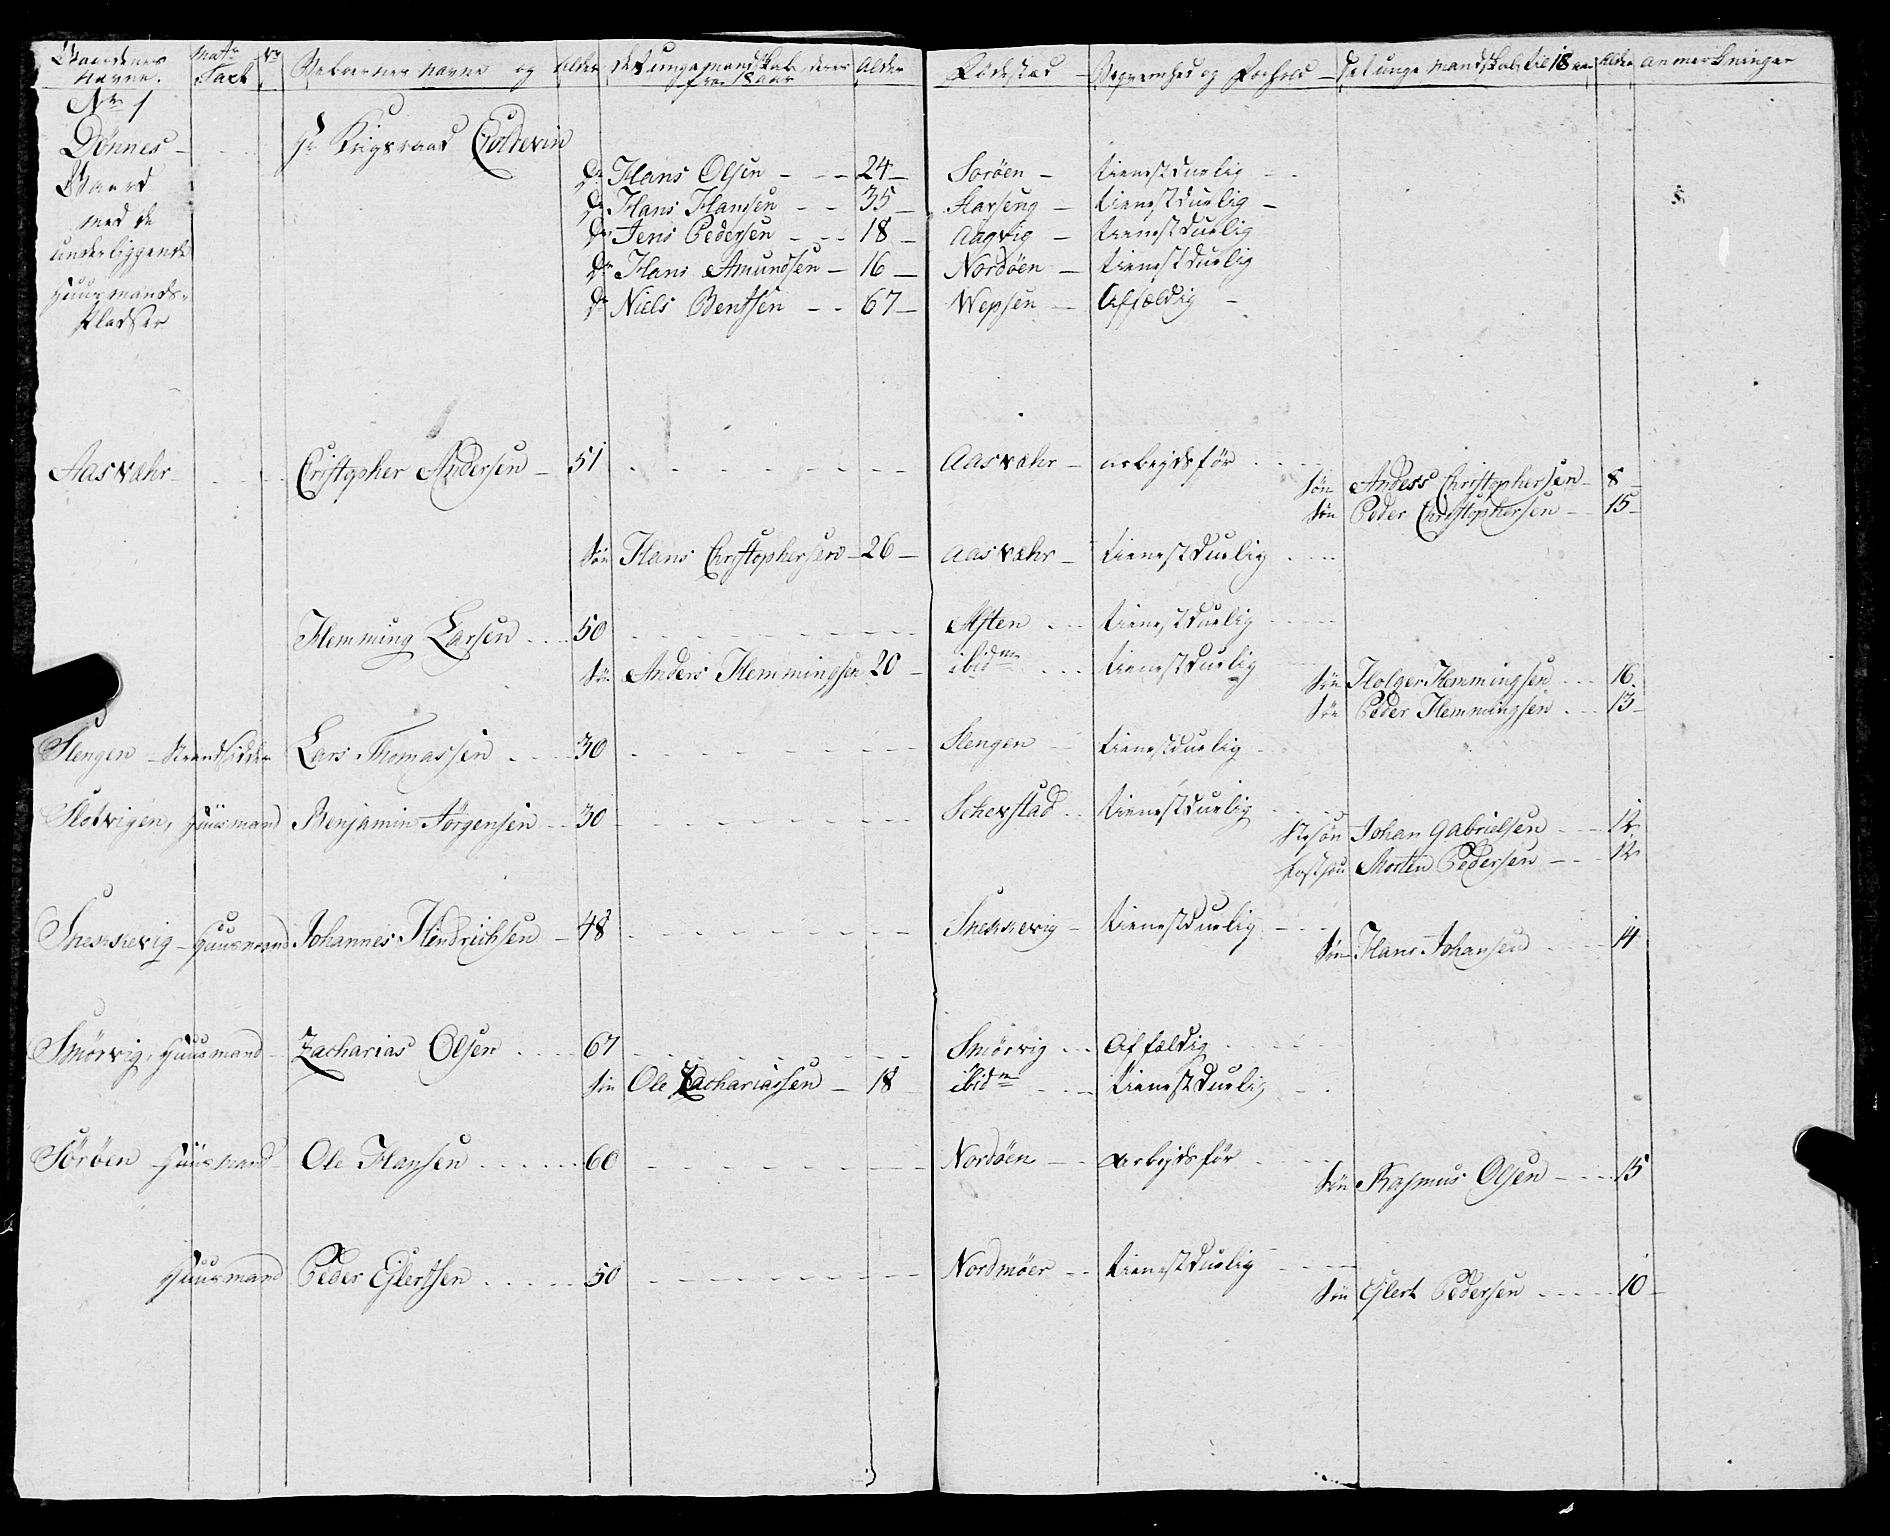 Gaardenes Navne. Matr Nr Taxt Beboernes Navne og Alder det unge mandskab fra 18 aar, deres Alder Fødestæd Beqvemhed og Forhold det unge Mandskab til 18 aar Alder Anmerkninger
No 1
Dønnes Hr Krigsraad Coldevin
Gaard Dr Hans Olsen 24 Sørøen tienestduelig
med de Dr Hans Hansen 35 tienestduelig
underliggende Dr Jens Pedersen 18 Aagvig tienestduelig
Huusmands- Dr Hans Amundsen 16 Nordøen tienestduelig
Pladser Dr Niels Bentsen 67 Wepsen Affældig
Aasvæhr Christopher Andersen 51 Aasvæhr arbejdsfør
Søn Anders Christophersen 8
Søn Peder Christophersen 15
Søn Hans Christophersen 26 Aasvæhr tienestduelig
Hemming Larsen 50 Alsten tienestduelig
Søn Anders Hemmingsen 20 ibidm tienestduelig Søn Holger Hemmingsen 16
Søn Peder Hemmingsen 13
Slengen Strandsidder Lars Thomassen 30 Slengen tienestduelig
Slotvigen, Huusmand Benjamin Jørgensen 30 Schevstad tienestduelig
Stesøn Johan Gabrielsen 12
Fostsøn Morten Pedersen 12
Snekkevig Huusmand Johannes Hendrichsen 48 Snekkevig tienestduelig
Søn Hans Johansen 14
Smørvig, Huusmand Zacharias Olsen 67 Smørvig Affældig
Søn Ole Zachariassen 18 ibidm tienestduelig
Sørøen Huusmand Ole Hansen 60 Nordøen arbejdsfør
Søn Rasmus Olsen 15
Huusmand Peder Ejlertsen 50 Nordmøer tienestduelig
Søn Ejlert Pedersen 10